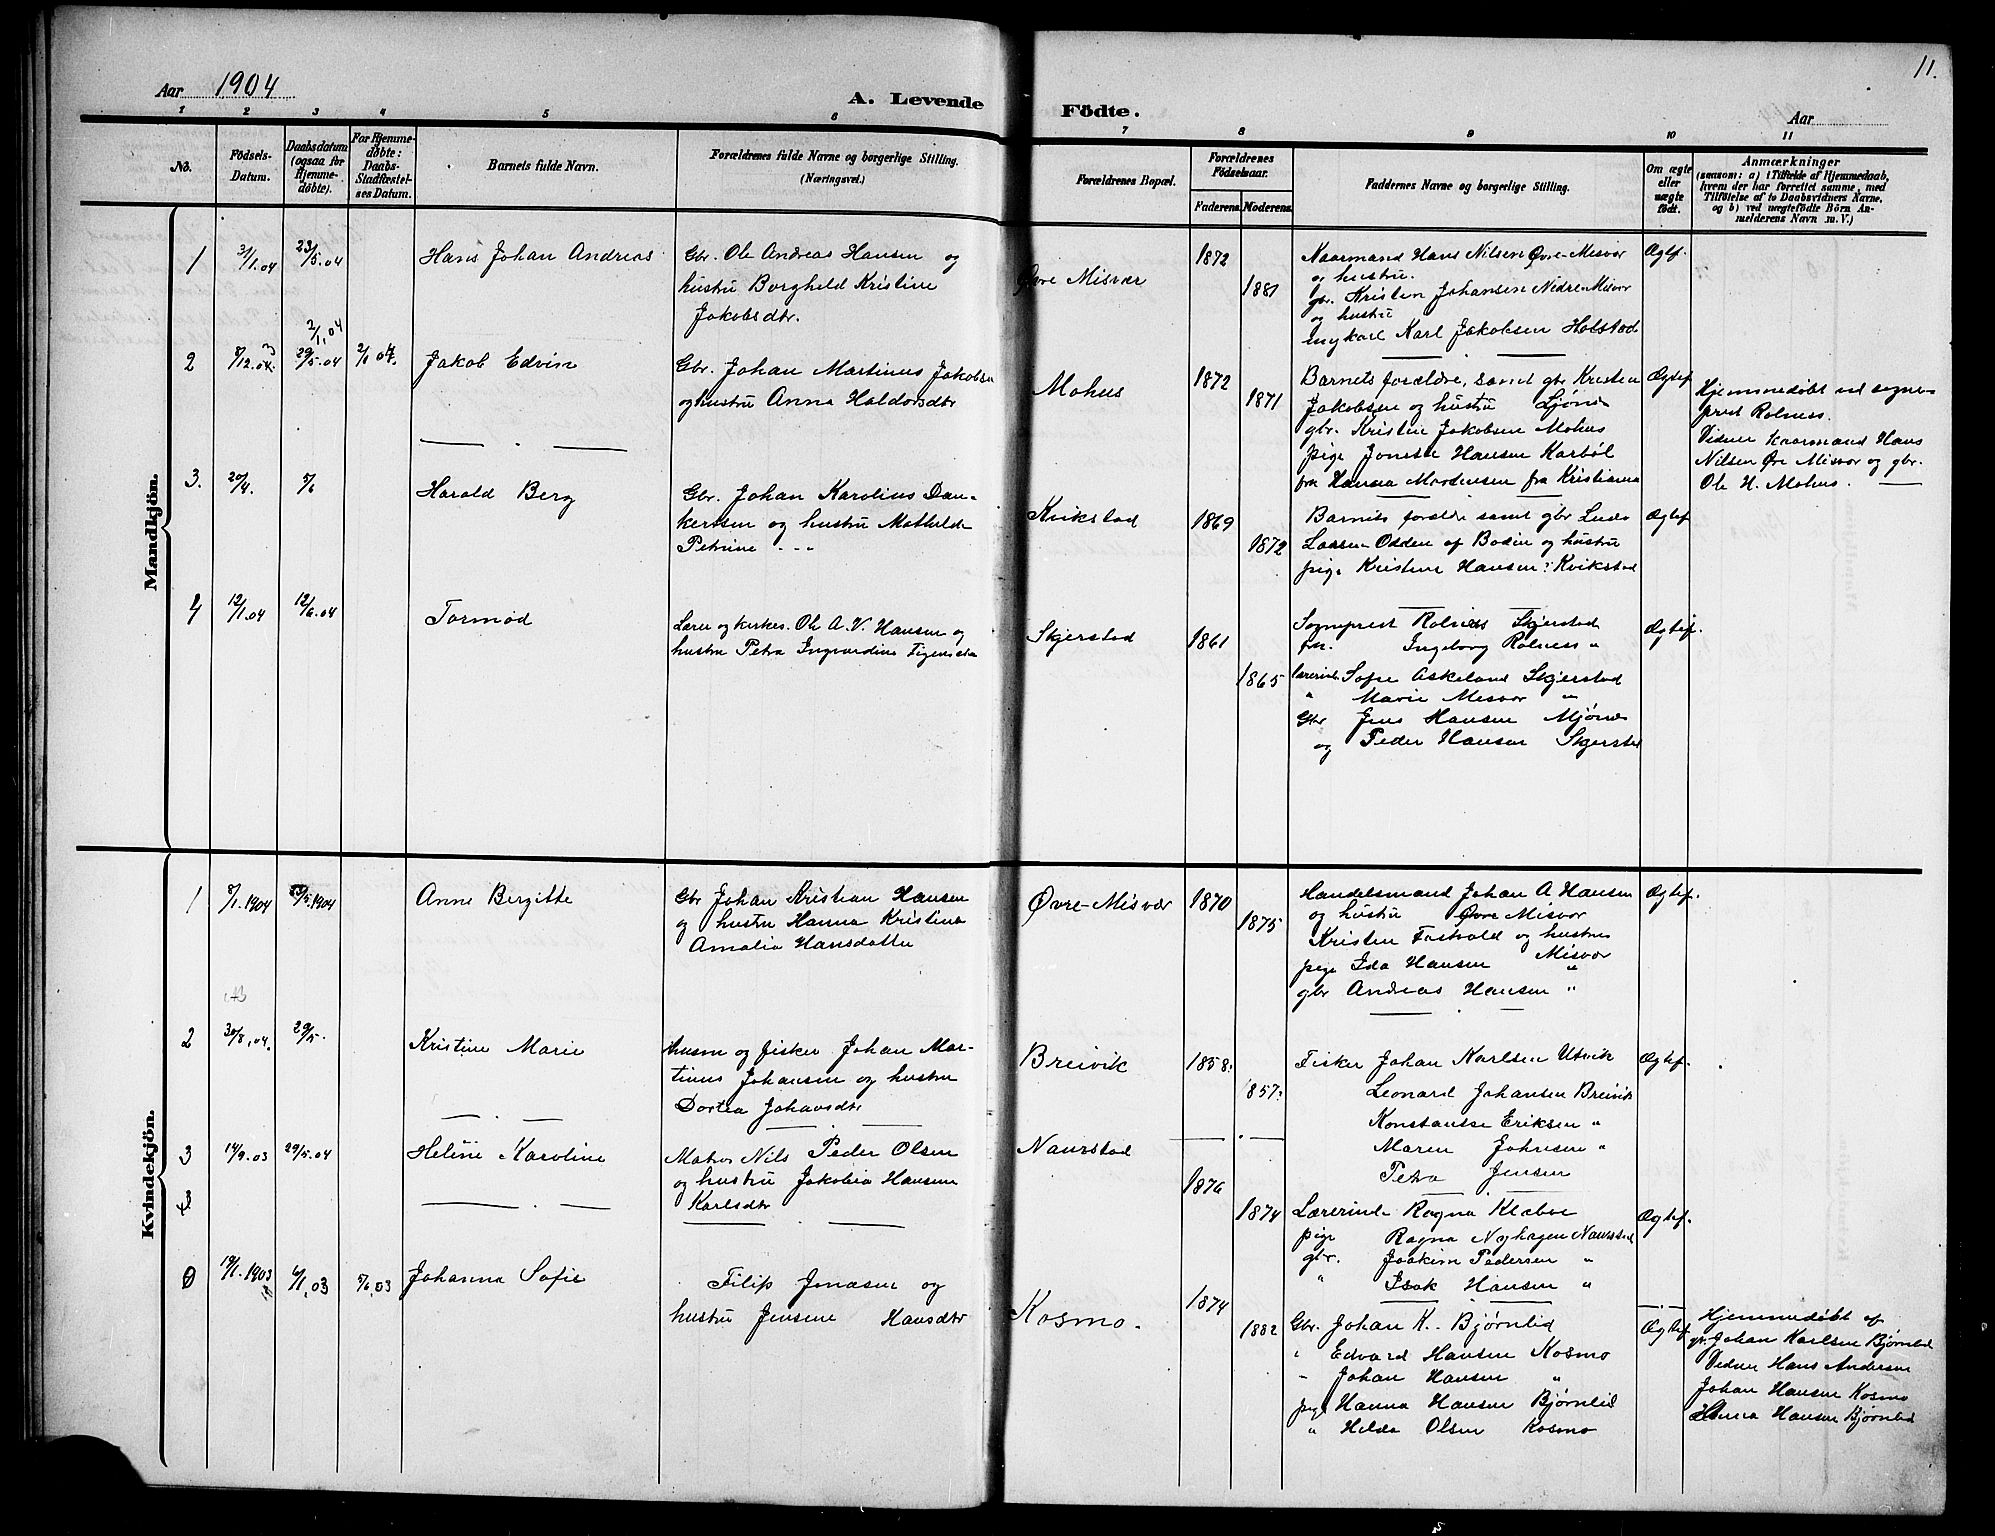 11.
Aar 1904
A. Levende Födte.
Aar
1 2 3 4 5 6 7 8 9 10 11
No.
Födsels-Datum.
Daabsdatum (ogsaa for Hjemmedöbte).
For Hjemmedöbte: Daabs-Stadfæstelses Datum.
Barnets fulde Navn.
Forældrenes fulde Navne og borgerlige Stilling.
(Næringsvei.)
Forældrenes Bopæl.
Forældrenes Födselsaar.
Faderens. Moderens.
Faddernes Navne og borgerlige Stilling.
Om ægte eller uægte födt.
Anmærkninger
(saasom: a) i Tilfælde af Hjemmedaab,
hvem der har forrettet samme, med
Tilföielse af to Daabsvidners Navne,
og b) ved uægtefödte Börn Anmelderens Navn m. V.)
Mandkjön.
1 31/1.04 23/5.04 Hans Johan Andreas
Gbr. Ole Andreas Hansen og
hustru Borghild Kristine
Jakobsdtr.
Øvre Misvær 1872 1881
Kaarmand Hans Nilsen Øvre-Misvær
og hustru.
gbr. Kristen Johansen Nedre-Misvær
og hustru
ungkarl Karl Jakobsen Holstad
Ægtef.
2/1.04
2 8/12.03 29/5.04 2/1 04. Jakob Edvin
Gbr. Johan Martinus Jakobsen
og hustru Anna Haldorsdtr
Mohus 1872 1871
Barnets forældre, samt gbr Kristen
Jakobsen og hustru Ljønes
gbr. Kristen Jakobsen Mohus
pige Jonette Hansen Karbøl
frk Hanna Mortensen fra Kristiania
Ægtef
Hjemmedøbt ved sogneprest Rolness.
Vidner kaarmand Hans
Nilsen Øvre Misvær og gbr.
Ole H. Mohus.
3. 20/4. 5/6 Harald Berg
Gbr. Johan Karolius Dankertsen og hustru Mathilde
Petrine
Kvikstad 1869 1872
Barnets forældre samt gbr
Larsen Odden af Bodin og hustru
pige Kristine Hansen Kvikstad
Ægtef
4 12/1.04 12/6.04 Tormod
Lærer og kirkes. Ole A. V. Hansen og
hustru Petra Ingvardine
Skjerstad 1861 1865
Sogneprest Rolness Skjerstad
fru. Ingeborg Rolness "
lærerinde Sofie Askeland Skjerstad
" Marie Misvær "
Gbr Jens Hansen Mjønes
og Peder Hansen Skjerstad
Ægtef.
Kvindekjön.
1 8/1.1904 23/5.1904 Anne Bergitte
Gbr Johan Kristian Hansen
og hustru Hanna Kristina
Amalia Hansdatter
Øvre-Misvær 1870 1875
Handelsmand Johan A Hansen
og hustru Øvre Misvær
Kristen Foshold og hustru
pige Ida Hansen Misvær
gbr Andreas Hansen "
Ægtef.
2 30/8.04. 29/5. Kristine Marie
Husm og fisker Johan Martinus Johansen og hustru
Dortea Johansdtr
Breivik 1858. 1857.
Fisker Johan Karlsen Utvik
Leonard Johansen Breivik
Konstanse Eriksen "
Maren Johnsen "
Petra Jensen
Ægtef.
3 14/9.03 29/5.04 Heline Karoline
Matros Nils Peder Olsen
og hustru Jakobia Hansine
Karlsdtr
Naurstad 1876 1874
Lærerinde Ragna Klæboe
pige Ragna Nyhagen Naurstad
gbr. Joakim Pedersen "
" Isak Hansen "
Ægtef.
19/1.1903 6/1.03 5/6.03 Johanna Sofie
Filip Jonasen og
hustru Jensine Hansdtr
Kosmo. 1874 1882
Gbr. Johan K. Bjørnlid
" Edvard Hansen Kosmo
" Johan Hansen "
pige Hanna Hansen Bjørnlid
" Hilda Olsen Kosmo
Ægtef.
Hjemmedøbt af
gbr. Johan Karlsen Bjørnlid
Vidner Hans Andersen
Johan Hansen Kosmo
Hanna Hansen Bjørnlid